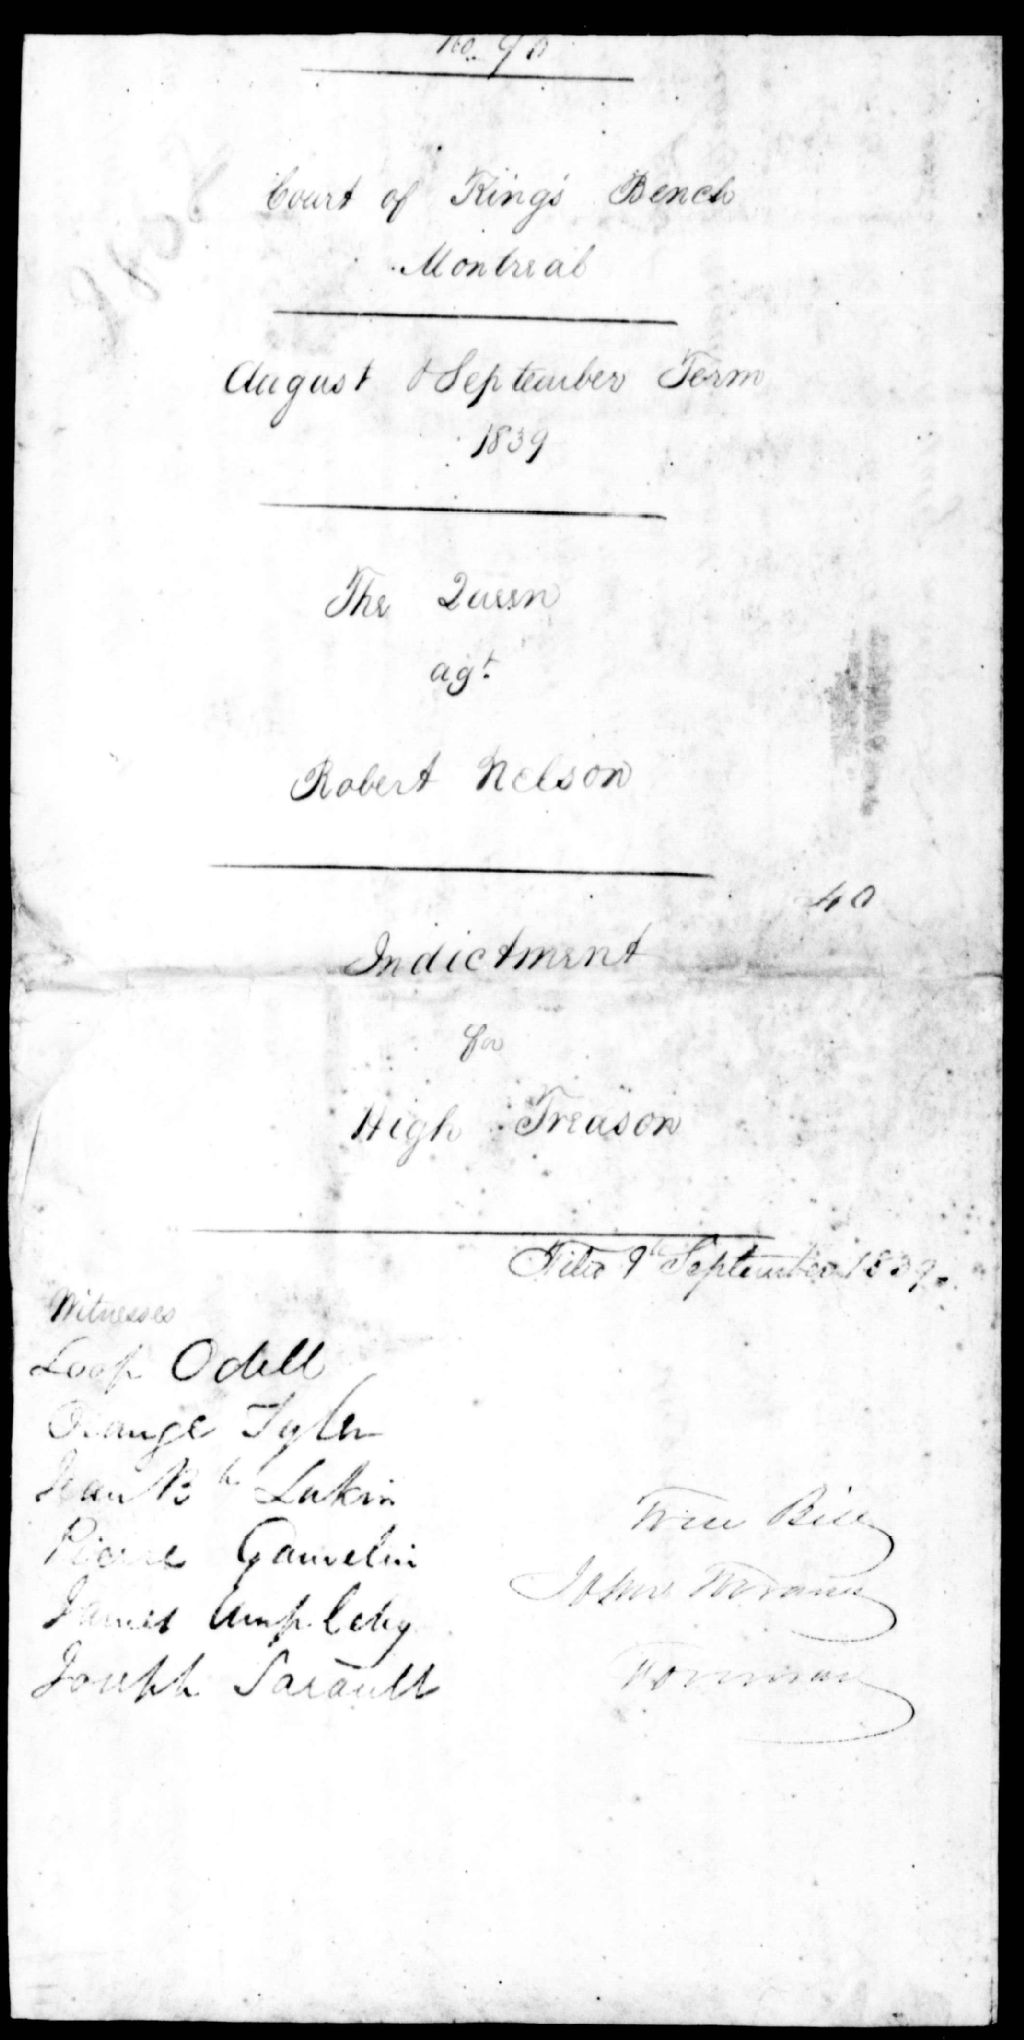 No. 90
Court of King's Bench
Montreal
August & September Term
1839
The Queen
agt.
Robert Nelson
40
Indictment
for
High Treason
Filed 9th September 1839.
Witnesses
Loop Odell
Orange Tyler
Jean Bte Lukin
Pierre Gamelin
James Umpleby
Joseph Sarault
True Bill
John
Foreman